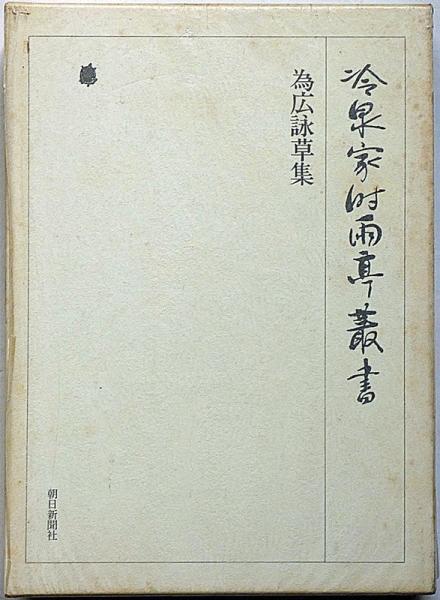 冷泉家時雨亭叢書
為広詠草集
朝日新聞社